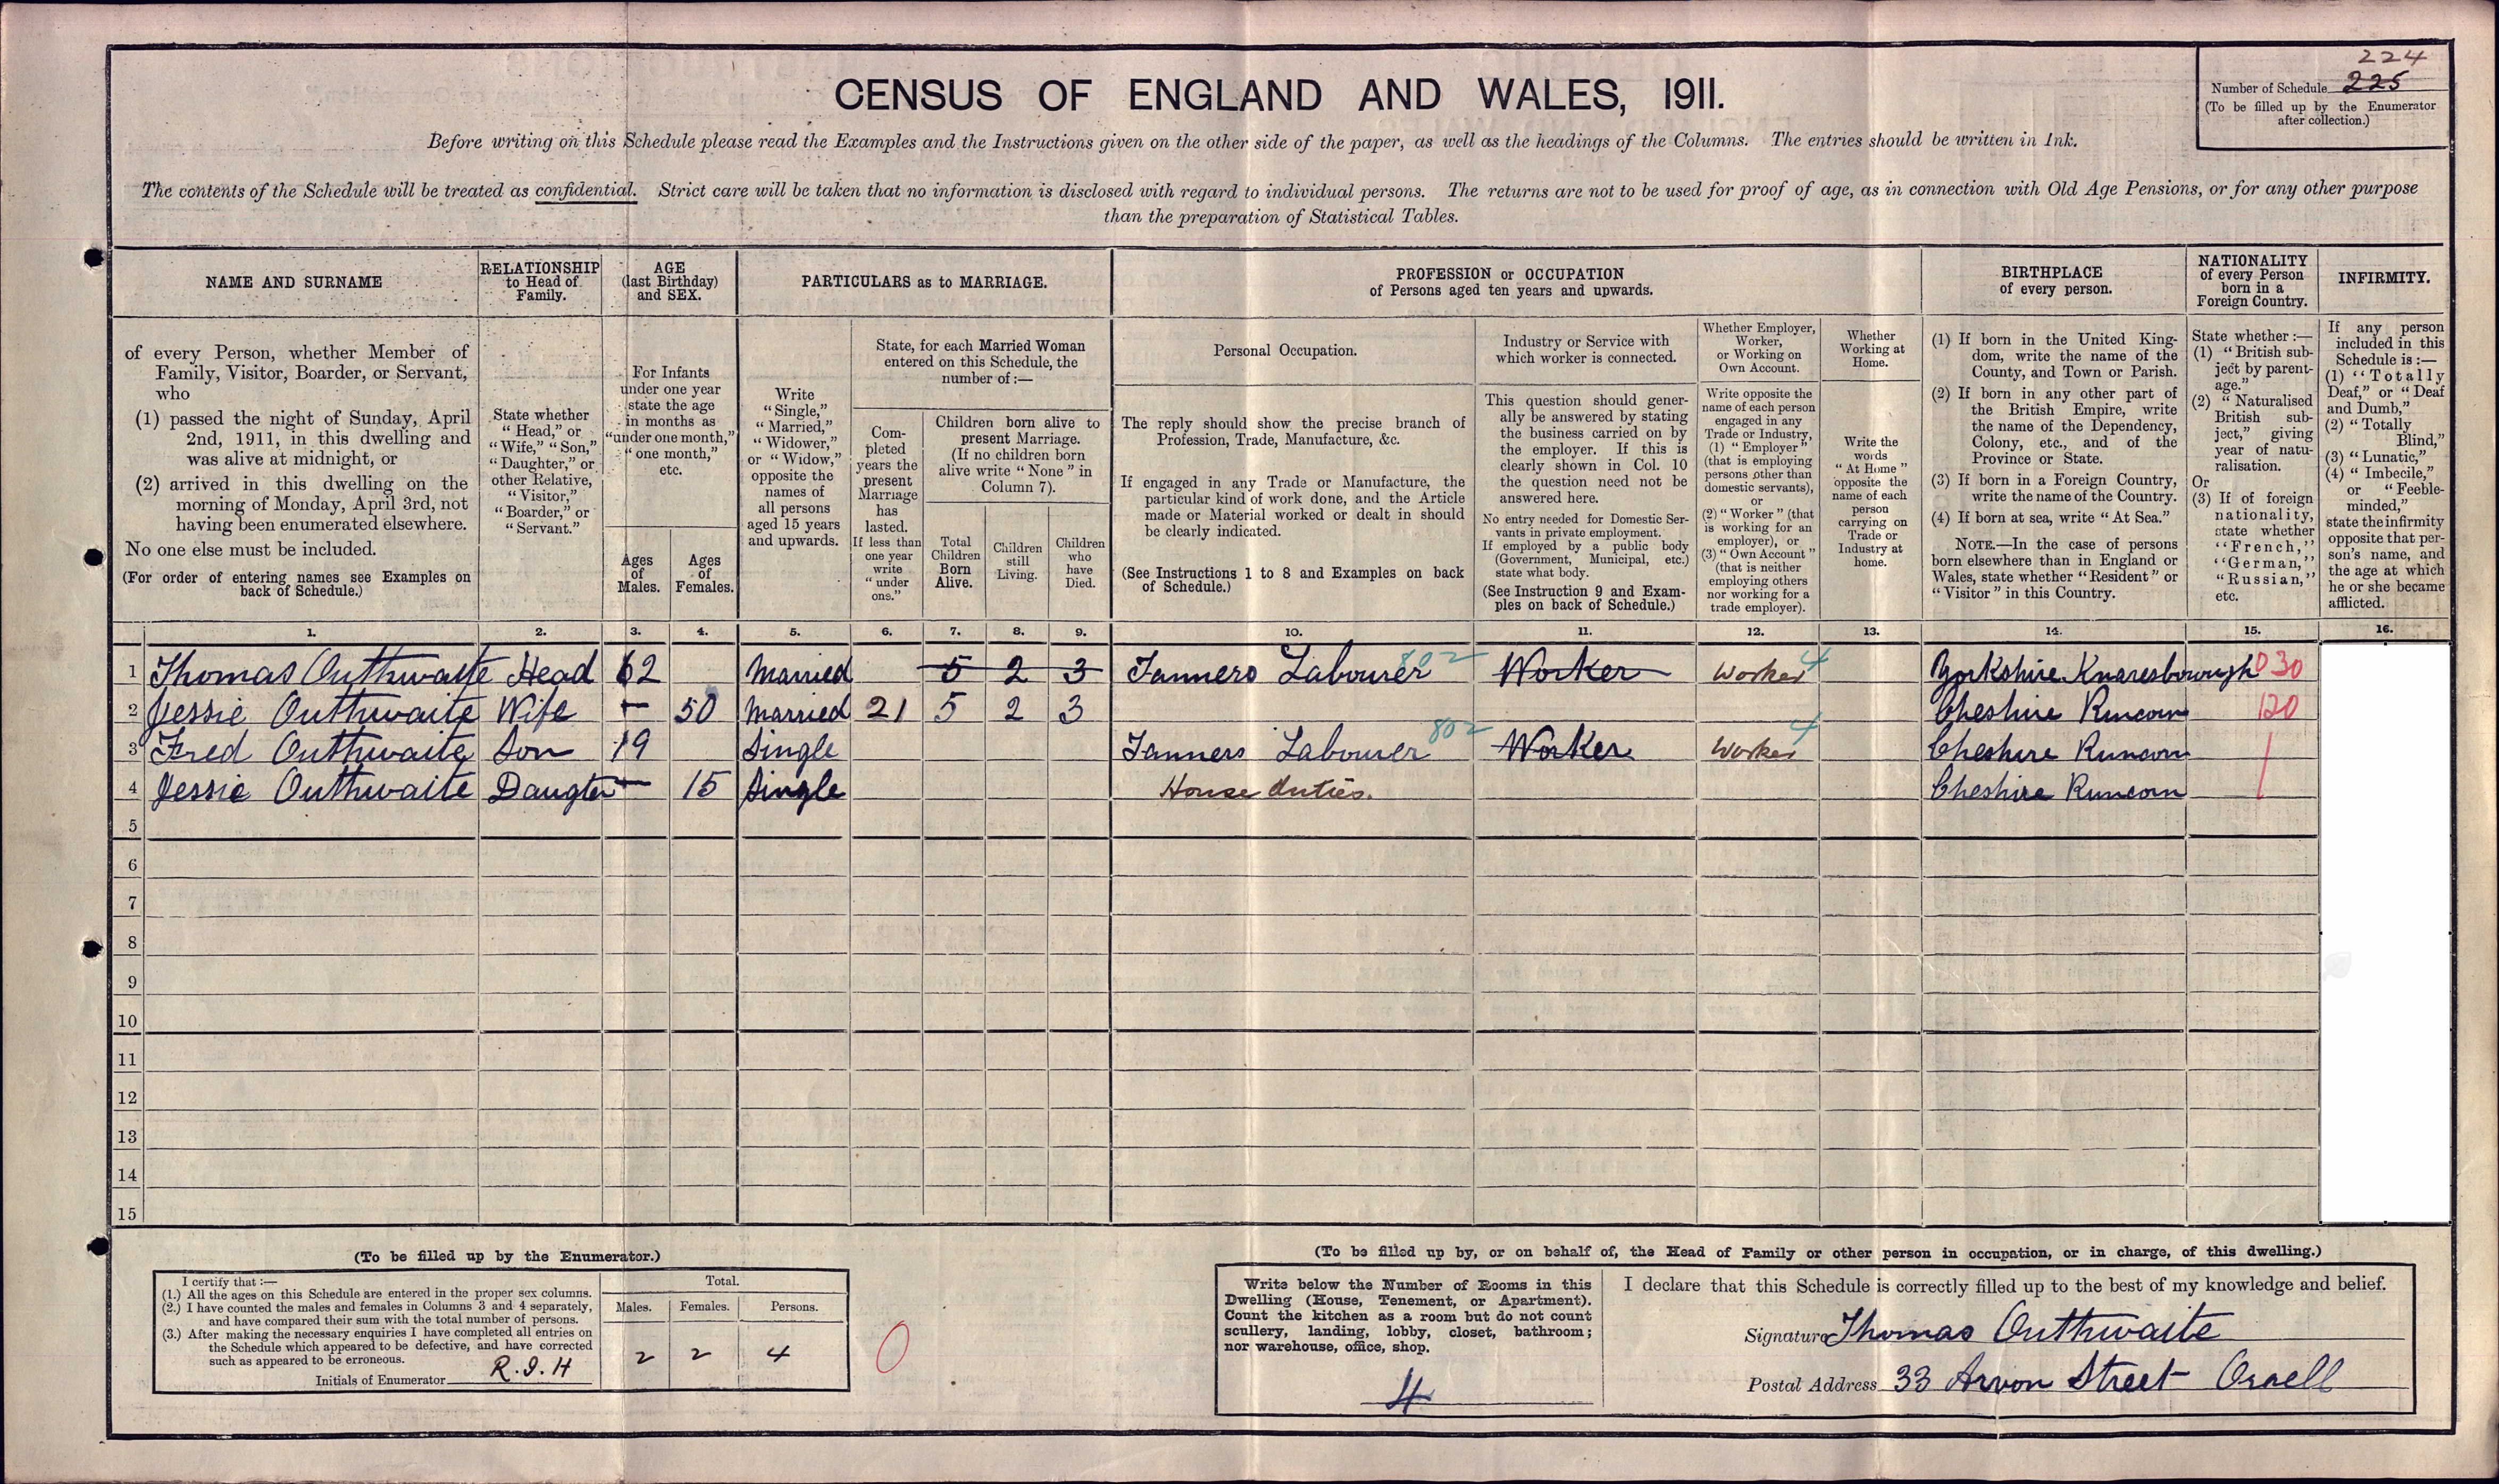 224
Number of Schedule 225
(To be filled up by the Enumerator
after collection.)
CENSUS OF ENGLAND AND WALES, 1911.
Before writing on this Schedule please read the Examples and the Instructions given on the other side of the paper, as well as the headings of the Columns. The entries should be written in Ink.
The contents of the Schedule will be treated as confidential. Strict care will be taken that no information is disclosed with regard to individual persons. The returns are not to be used for proof of age, as in connection with Old Age Pensions, or for any other purpose
than the preparation of Statistical Tables.
NAME AND SURNAME
of every Person, whether Member of
Family, Visitor, Boarder, or Servant,
who
(1) passed the night of Sunday, April
2nd, 1911, in this dwelling and
was alive at midnight, or
(2) arrived in this dwelling on the
morning of Monday, April 3rd, not
having been enumerated elsewhere.
No one else must be included.
(For order of entering names see Examples on
back of Schedule.)
RELATIONSHIP
to Head of
Family.
State whether
"Head," or
"Wife," "Son,"
"Daughter," or
other Relative,
"Visitor,"
"Boarder," or
"Servant."
AGE
(last Birthday)
and SEX.
For Infants
under one year
state the age
in months as
"under one month,"
"one month,"
etc.
Ages
of
Males.
Ages
of
Females.
PARTICULARS as to MARRIAGE.
Write
"Single,"
"Married,"
"Widower,"
or "Widow,"
opposite the
names of
all persons
aged 15 years
and upwards.
State, for each Married Woman
entered on this Schedule, the
number of:—
Com-
pleted
years the
present
Marriage
has
lasted.
If less than
one year
write
"under
one."
Children born alive to
present Marriage.
(If no children born
alive write "None" in
Column 7).
Total
Children
Born
Alive.
Children
still
Living.
Children
who
have
Died.
PROFESSION or OCCUPATION
of Persons aged ten years and upwards.
Personal Occupation.
The reply should show the precise branch of
Profession, Trade, Manufacture, &c.
If engaged in any Trade or Manufacture, the
particular kind of work done, and the Article
made or Material worked or dealt in should
be clearly indicated.
(See Instructions 1 to 8 and Examples on back
of Schedule.)
Industry or Service with
which worker is connected.
This question should gener-
ally be answered by stating
the business carried on by
the employer. If this is
clearly shown in Col. 10
the question need not be
answered here.
No entry needed for Domestic Ser-
vants in private employment.
If employed by a public body
(Government, Municipal, etc.)
state what body.
(See Instruction 9 and Exam-
ples on back of Schedule.)
Whether Employer,
Worker,
or Working on
Own Account.
Write opposite the
name of each person
engaged in any
Trade or Industry,
(1) "Employer"
(that is employing
persons other than
domestic servants),
or
(2) "Worker" (that
is working for an
employer), or
(3) "Own Account"
(that is neither
employing others
nor working for a
trade employer).
Whether
Working at
Home.
Write the
words
"At Home"
opposite the
name of each
person
carrying on
Trade or
Industry at
home.
BIRTHPLACE
of every person.
(1) If born in the United King-
dom, write the name of the
County, and Town or Parish.
(2) If born in any other part of
the British Empire, write
the name of the Dependency,
Colony, etc., and of the
Province or State.
(3) If born in a Foreign Country,
write the name of the Country.
(4) If born at sea, write "At Sea."
NOTE.—In the case of persons
born elsewhere than in England or
Wales, state whether "Resident" or
"Visitor" in this Country.
NATIONALITY
of every Person
born in a
Foreign Country.
State whether:—
(1) "British sub-
ject by parent-
age."
(2) "Naturalised
British sub-
ject," giving
year of natu-
ralisation.
Or
(3) If of foreign
nationality,
state whether
"French,"
"German,"
"Russian,"
etc.
INFIRMITY.
If any person
included in this
Schedule is:—
(1) "Totally
Deaf," or "Deaf
and Dumb,"
(2) "Totally
Blind,"
(3) "Lunatic,"
(4) "Imbecile,"
or "Feeble-
minded,"
state the infirmity
opposite that per-
son's name, and
the age at which
he or she became
afflicted.
1. 2. 3. 4. 5. 6. 7. 8. 9. 10. 11. 12. 13. 14. 15. 16.
1 Thomas Outhwaite Head 62 Married 5 2 3 Tanners Labourer 802 Worker Worker 4 Yorkshire Knaresborough 030
2 Jessie Outhwaite Wife — 50 Married 21 5 2 3 Cheshire Runcorn 120
3 Fred Outhwaite Son 19 Single Tanners Labourer 802 Worker Worker 4 Cheshire Runcorn
4 Jessie Outhwaite Daugter — 15 Single House duties. Cheshire Runcorn
5
6
7
8
9
10
11
12
13
14
15
(To be filled up by the Enumerator.)
I certify that:—
(1.) All the ages on this Schedule are entered in the proper sex columns.
(2.) I have counted the males and females in Columns 3 and 4 separately,
and have compared their sum with the total number of persons.
(3.) After making the necessary enquiries I have completed all entries on
the Schedule which appeared to be defective, and have corrected
such as appeared to be erroneous.
Initials of Enumerator R.J.H
Total.
Males. Females. Persons.
2 2 4
0
(To be filled up by, or on behalf of, the Head of Family or other person in occupation, or in charge, of this dwelling.)
Write below the Number of Rooms in this
Dwelling (House, Tenement, or Apartment).
Count the kitchen as a room but do not count
scullery, landing, lobby, closet, bathroom;
nor warehouse, office, shop.
4
I declare that this Schedule is correctly filled up to the best of my knowledge and belief.
Signature Thomas Outhwaite
Postal Address 33 Arvon Street Orrell